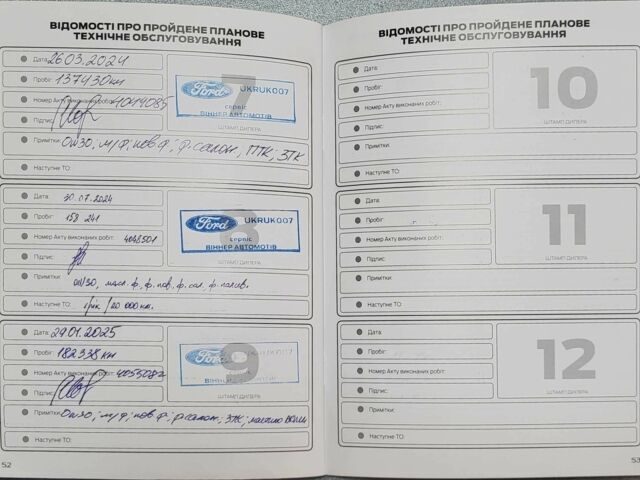 ВІДОМОСТІ ПРО ПРОЙДЕНЕ ПЛАНОВЕ
ТЕХНІЧНЕ ОБСЛУГОВУВАННЯ
7
Дата: 26.03.2024
Пробіг: 137430км
Номер Акту виконаних робіт: 4049085
Підпис:
Ford UKRUK007
сервіс
ВІННЕР АВТОМОТІВ
ШТАМП ДИЛЕРА
Примітки: 0w30, м/ф, пов ф, ф.салон, ГТК; ЗТК
Наступне ТО:
8
Дата: 30.07.2024
Пробіг: 159 241
Номер Акту виконаних робіт: 4048501
Підпис:
Ford UKRUK007
сервіс
ВІННЕР АВТОМОТІВ
ШТАМП ДИЛЕРА
Примітки:
0W/30, масл. ф, ф. пов. ф. сал, ф. палив.
Наступне ТО: 1рік / 20 000 км.
9
Дата: 29.01.2025
Пробіг: 182338км
Номер Акту виконаних робіт: 4055087
Підпис:
Ford UKRUK007
ВІННЕР АВТОМОТІВ
ШТАМП ДИЛЕРА
Примітки: 0w30, м/ф, пов ф, ф.салон, ЗТК,
Наступне ТО:
52
ВІДОМОСТІ ПРО ПРОЙДЕНЕ ПЛАНОВЕ
ТЕХНІЧНЕ ОБСЛУГОВУВАННЯ
10
Дата:
Пробіг:
Номер Акту виконаних робіт:
Підпис:
ШТАМП ДИЛЕРА
Примітки:
Наступне ТО:
11
Дата:
Пробіг:
Номер Акту виконаних робіт:
Підпис:
ШТАМП ДИЛЕРА
Примітки:
Наступне ТО:
12
Дата:
Пробіг:
Номер Акту виконаних робіт:
Підпис:
ШТАМП ДИЛЕРА
Примітки:
Наступне ТО:
53